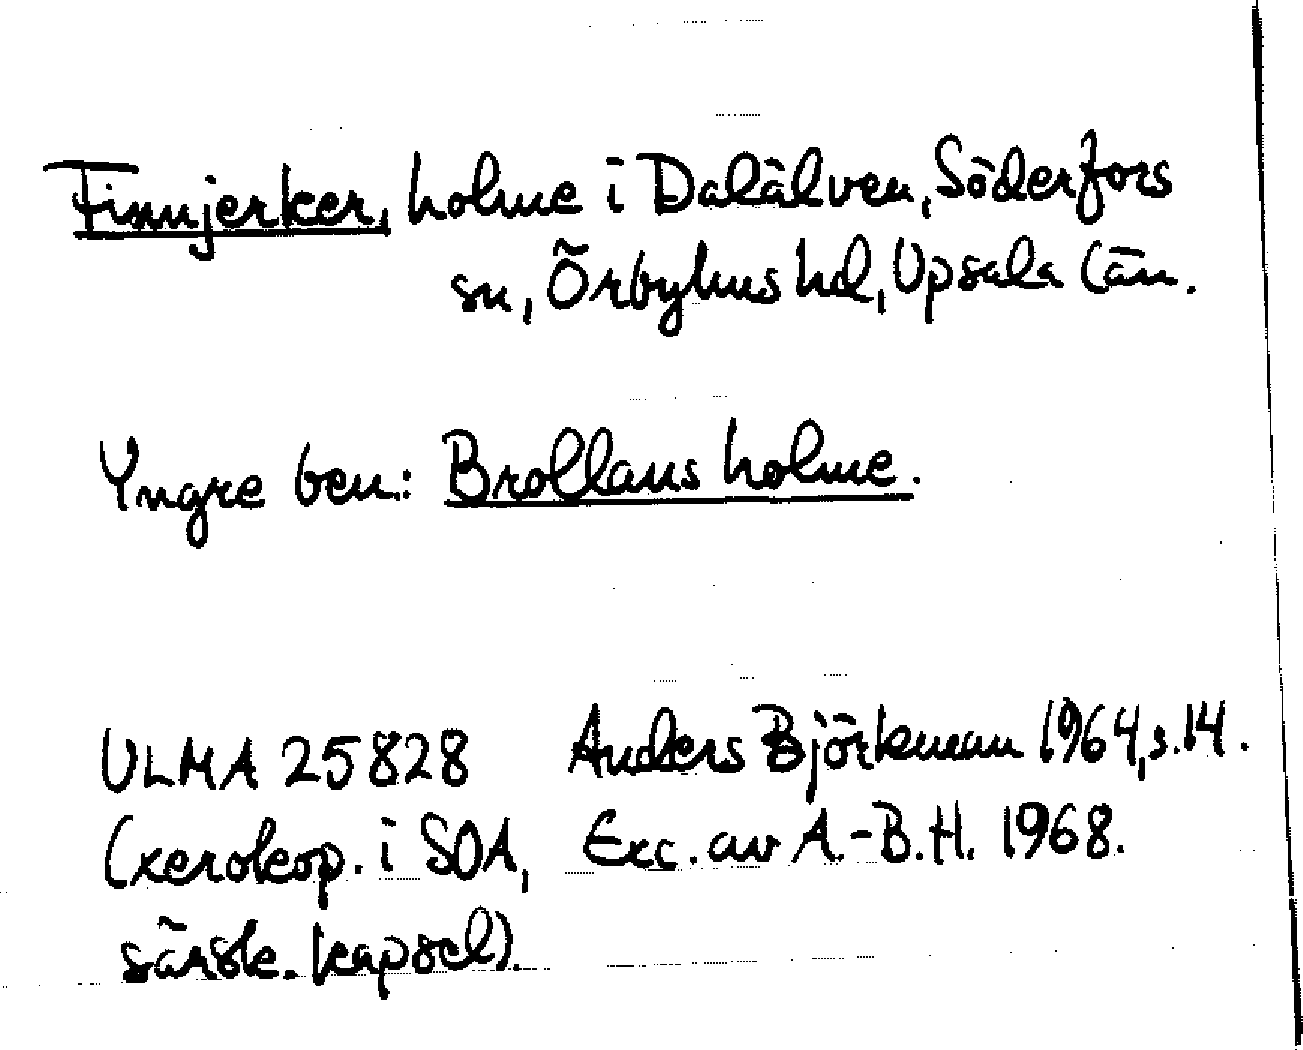 Finnjerker, holme i Dalälven, Söderfors
sn, Örbyhus hd, Upsala län.
Yngre ben: Brollans holme.
ULMA 25828 Anders Björkman 1964, s. 14.
(xerokop. i SOA, Exc. av A.-B.H. 1968.
särsk. kapsel).